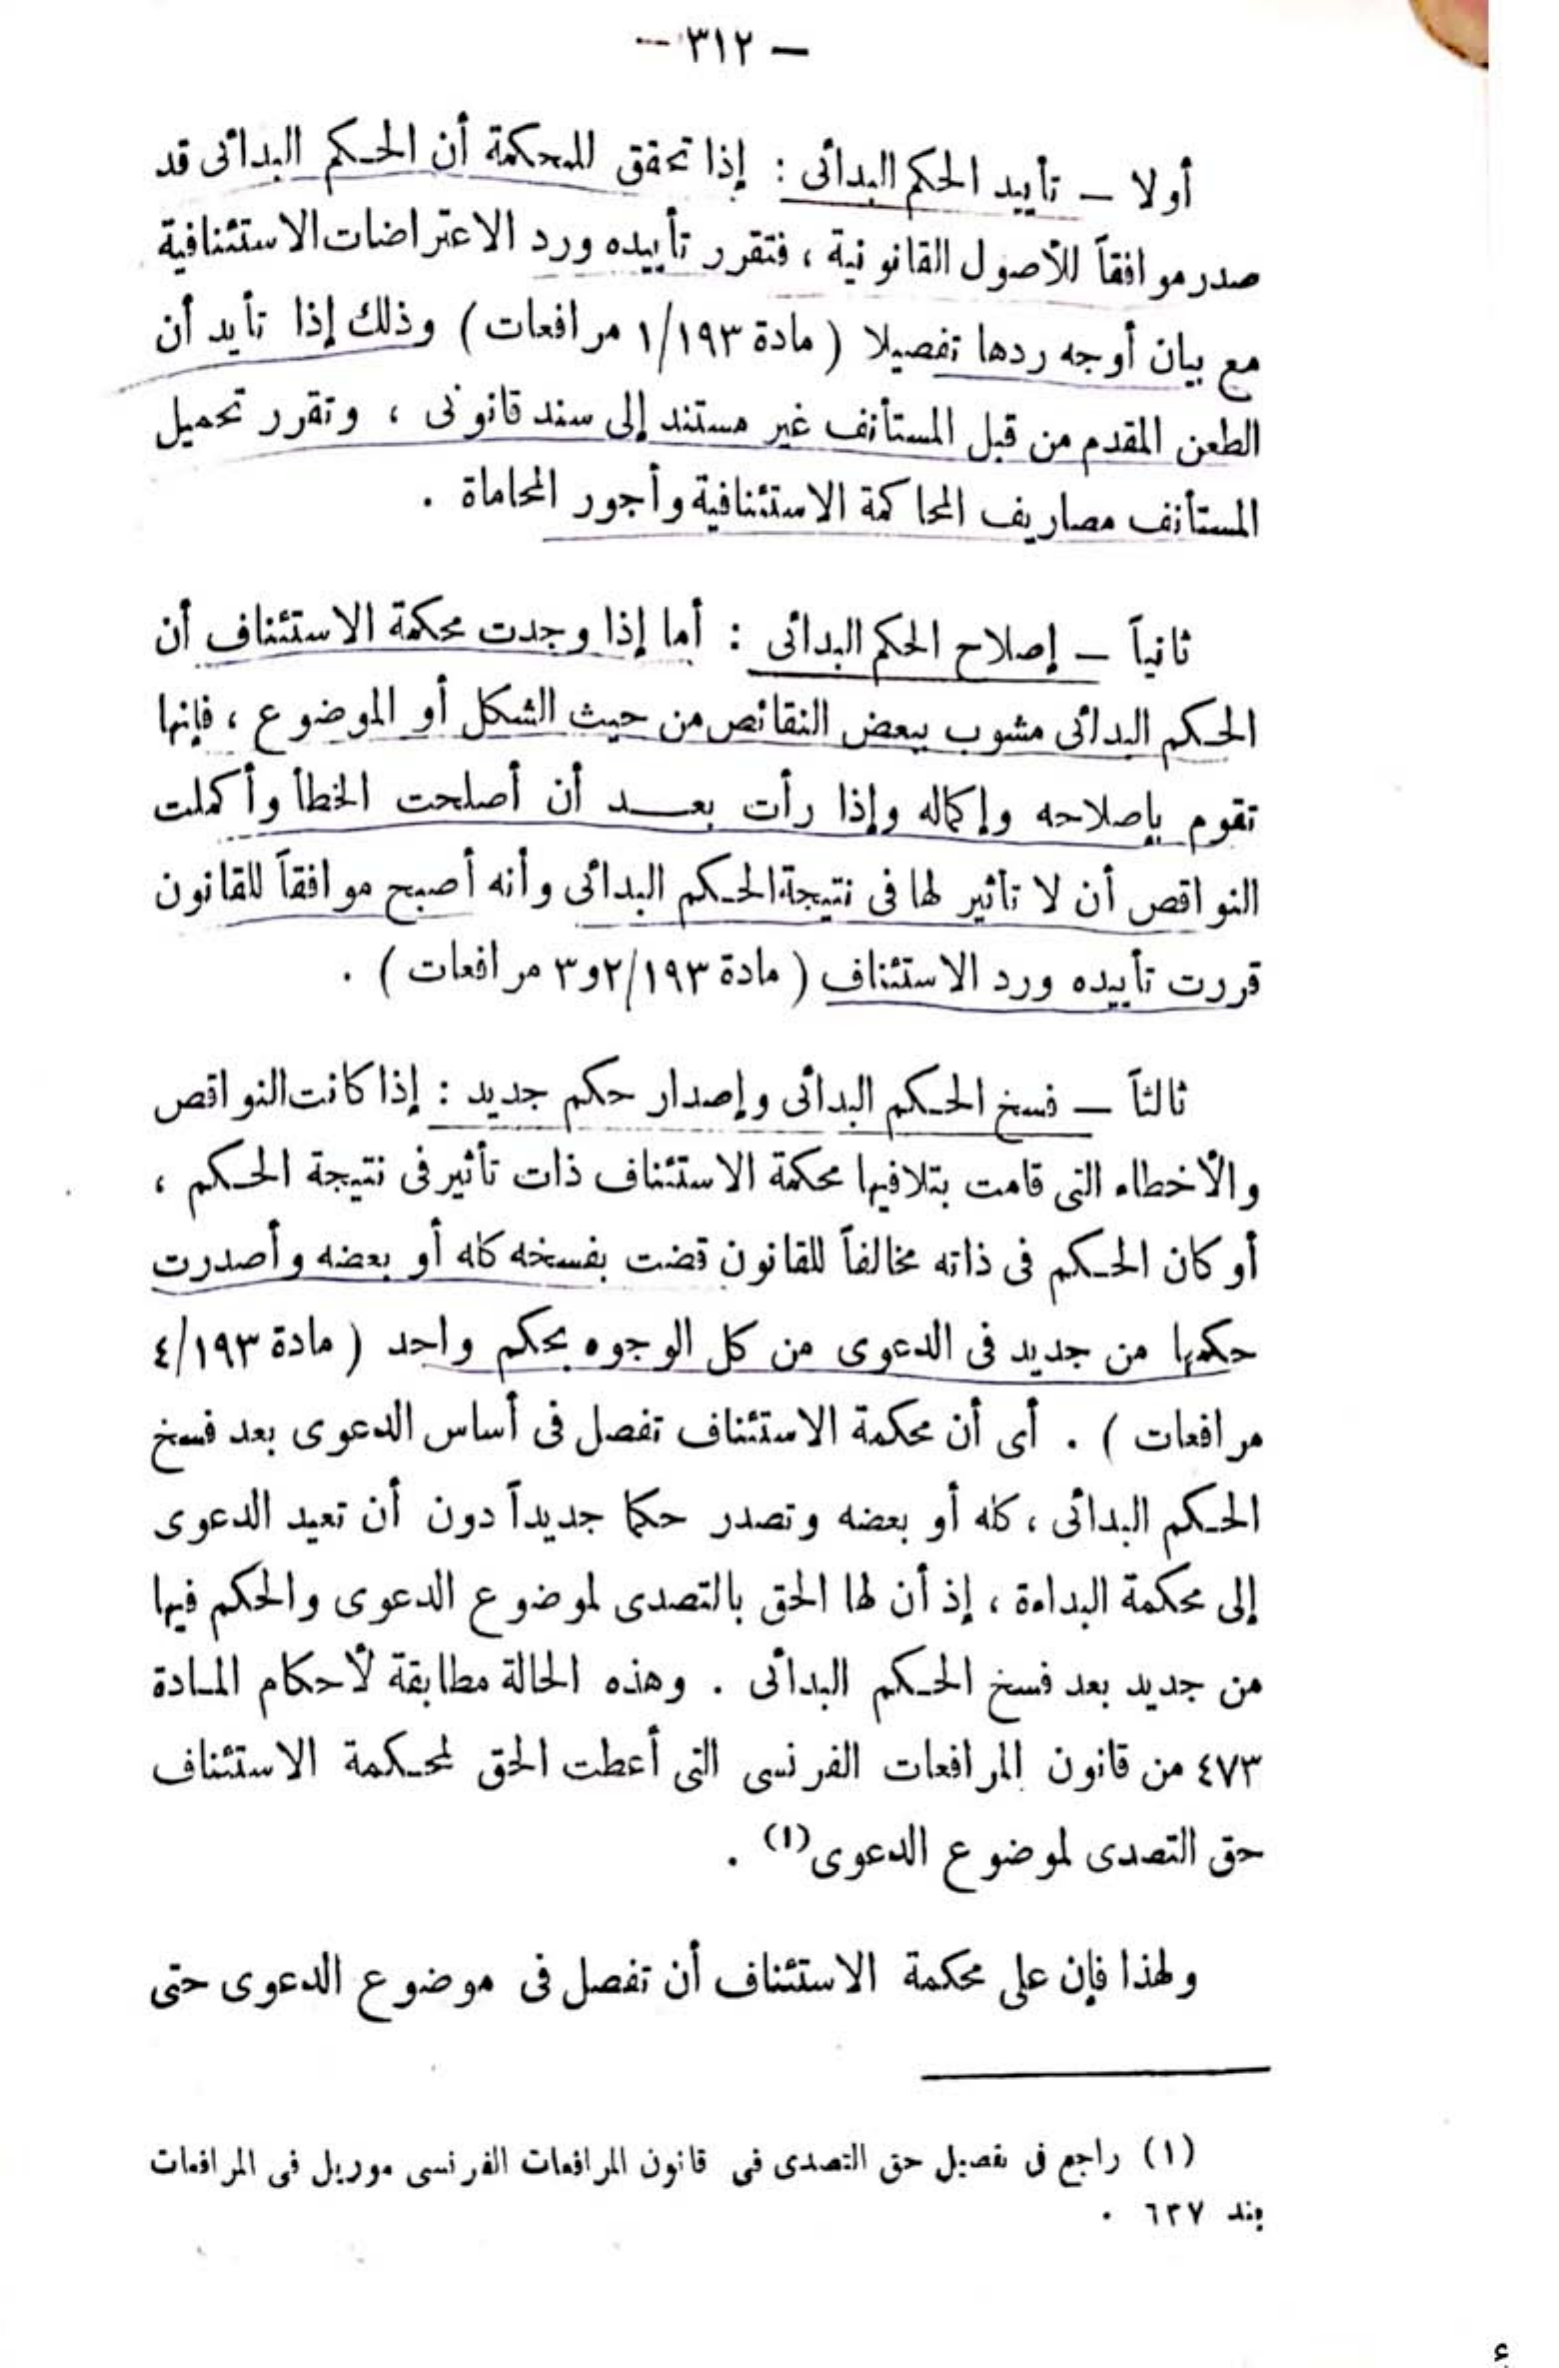 — ٣١٢ —
أولا — تأييد الحكم البدائى : إذا تحقق للمحكمة أن الحكم البدائى قد
صدر موافقاً للأصول القانونية ، فتقرر تأييده ورد الاعتراضات الاستئنافية
مع بيان أوجه ردها تفصيلا ( مادة ١/١٩٣ مرافعات ) وذلك إذا تأيد أن
الطعن المقدم من قبل المستأنف غير مستند إلى سند قانونى ، وتقرر تحميل
المستأنف مصاريف المحاكمة الاستئنافية وأجور المحاماة .
ثانياً — إصلاح الحكم البدائى : أما إذا وجدت محكمة الاستئناف أن
الحكم البدائى مشوب ببعض النقائص من حيث الشكل أو الموضوع ، فإنها
تقوم بإصلاحه وإكماله وإذا رأت بعد أن أصلحت الخطأ وأكملت
النواقص أن لا تأثير لها فى نتيجة الحكم البدائى وأنه أصبح موافقاً للقانون
قررت تأييده ورد الاستئناف ( مادة ٢/١٩٣و٣ مرافعات ) .
ثالثاً — فسخ الحكم البدائى وإصدار حكم جديد : إذا كانت النواقص
والأخطاء التى قامت بتلافيها محكمة الاستئناف ذات تأثير فى نتيجة الحكم ،
أو كان الحكم فى ذاته مخالفاً للقانون قضت بفسخه كله أو بعضه وأصدرت
حكمها من جديد فى الدعوى من كل الوجوه بحكم واحد ( مادة ٤/١٩٣
مرافعات ) . أى أن محكمة الاستئناف تفصل فى أساس الدعوى بعد فسخ
الحكم البدائى ، كله أو بعضه وتصدر حكما جديداً دون أن تعيد الدعوى
إلى محكمة البداءة ، إذ أن لها الحق بالتصدى لموضوع الدعوى والحكم فيها
من جديد بعد فسخ الحكم البدائى . وهذه الحالة مطابقة لأحكام المادة
٤٧٣ من قانون المرافعات الفرنسى التى أعطت الحق لمحكمة الاستئناف
حق التصدى لموضوع الدعوى(١) .
ولهذا فإن على محكمة الاستئناف أن تفصل فى موضوع الدعوى حتى
(١) راجع فى تفصيل حق التصدى فى قانون المرافعات الفرنسى موريل فى المرافعات
بند ٦٣٧ .